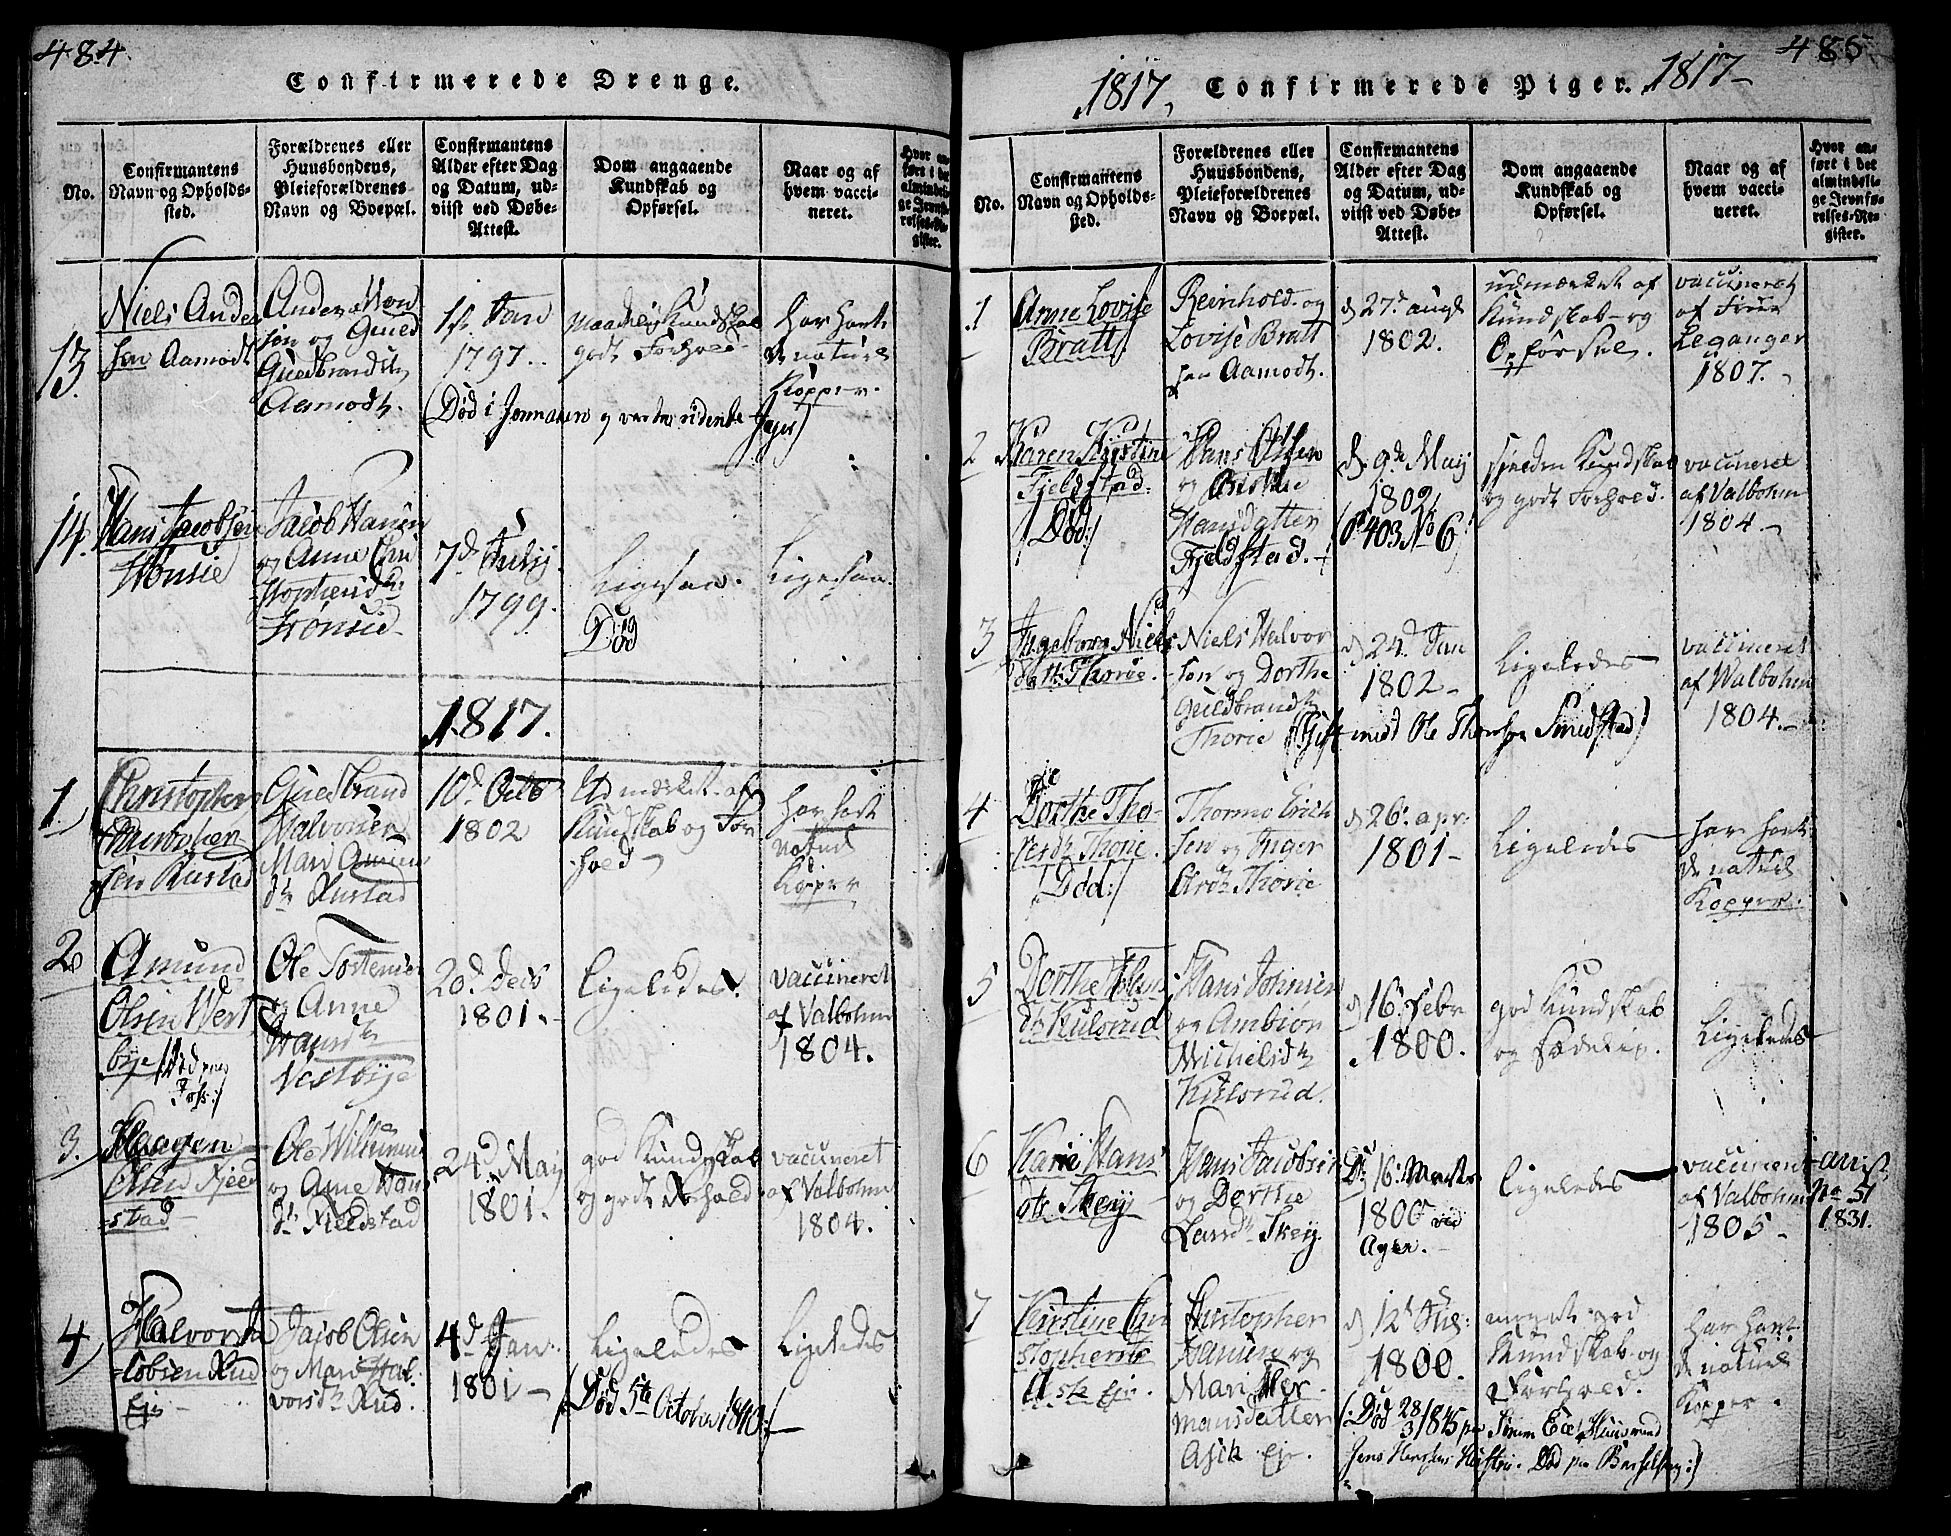 484.
Confirmerede Drenge.
No.
Confirmantens
Navn og Opholds-
sted.
Forældrenes eller
Huusbondens,
Pleieforældrenes
Navn og Boepæl.
Confirmantens
Alder efter Dag
og Datum, ud-
viist ved Døbe-
Attest.
Dom angaaende
Kundskab og
Opførsel.
Naar og af
hvem vacci-
neret.
Hvor an-
ført i det
almindeli-
ge Jevnfø-
relses-Re-
gister.
13.
Niels Ander
sen Aamodt
Anders
søn og Guld
Guldbrandsdtr
Aamodt.
1ste Jan
1797.
maadelig Kundskab
godt Forhold
Har havt
de naturl
Kopper.
(Død i
14.
Hans Jacobsen
Trønsie
Jacob Hansen
og Anne Chri
stophersdtr
Trønsie
7d. July
1799.
Ligesaa.
Død
Ligesaa.
1817.
1.
Christopher
Rustad
Guldbrand
Halvorsen
Mari Amun
dtr Rustad
10d Octb
1802
Udmærket af
Kundskab og For
hold
Har havt
naturl
Kopper
2
Amund
Olsen West
bye
Ole Tostensen
og Anne
Hansdtr
Vestbye
20d. Decb
1801.
Ligeledes.
vaccineret
af Valbohm
1804.
3.
Haagen
Olsen Fjeld
stad
Ole Willumsen
og Anne Hans
dtr Fieldstad
24d. May
1801.
god Kundskab
og godt Forhold
vaccineret
af Valbohm
1804.
4
Halvor Ja
cobsen Rud
Eje
Jacob Olsen
og Mari Hal
vorsdtr Rud.
4d. Jan.
1801
Ligeledes
(Død 5te October 1840:/
Ligeledes
485
1817, Confirmerede Piger. 1817
No.
Confirmantens
Navn og Opholds-
sted.
Forældrenes eller
Huusbondens,
Pleieforældrenes
Navn og Boepæl.
Confirmantens
Alder efter Dag
og Datum, ud-
viist ved Døbe-
Attest.
Dom angaaende
Kundskab og
Opførsel.
Naar og af
hvem vacci-
neret.
Hvor an-
ført i det
almindeli-
ge Jevnfø-
relses-Re-
gister.
1
Anne Lovise
Bratt
Reinhold og
Lovise Bratt
paa Aamodt.
d 27d. augt
1802.
udmærket af
Kundskab og
Opførsel.
vaccineret
af Frue
Leganger
1807.
2
Karen Kirstine
Fjeldstad.
/Død:/
Hans Olsen
og Birthe
Hansdatter
Fjeldstad.
d. 9de May
1802.
(P. 403 No 6)
sjelden Kundskab
og godt Forhold.
vaccineret
af Valbohm
1804.
3
Ingeborg Niels
datter Thorie.
Niels Halvor
sen og Dorthe
Guldbrandsdtr
Thorie
d 24d. Jan
1802
Ligeledes
(Gift med Ole Thorsen Smedstad)
vaccineret
af Walbohm
1804.
4
Dorthe Tho-
resdtr Thorie.
/Død:/
Thormo Erich
sen og Inger
Thorie
d 26. apr:
1801
Ligeledes
Har havt
de naturl
Kopper.
5
Dorthe Hans
dtr Kulsrud
Hans Johnsen
og Ambior
Michelsdtr
Kulsrud.
d 16. Febr
1800.
god Kundskab
og Sædelig.
Ligeledes
6
Karie Hans
dtr Skeij
Hans Jacobsen
og Dorthe
Larsdtr Skeij
D. 16. Martz
1800 ved
Ager.
Ligeledes
vaccineret
af Valbohm
1805
No 51
1831.
7
Kirstine Chri
stophersdtr
Ask Eje.
Christopher
Hansen og
Mari Her-
mansdatter
Asck Eje.
d 12d.
1800.
meget god
Kundskab og
Forhold.
Har havt
de naturl
Kopper.
(:Død 28/3 1845 paa
Jens Hansens Død paa